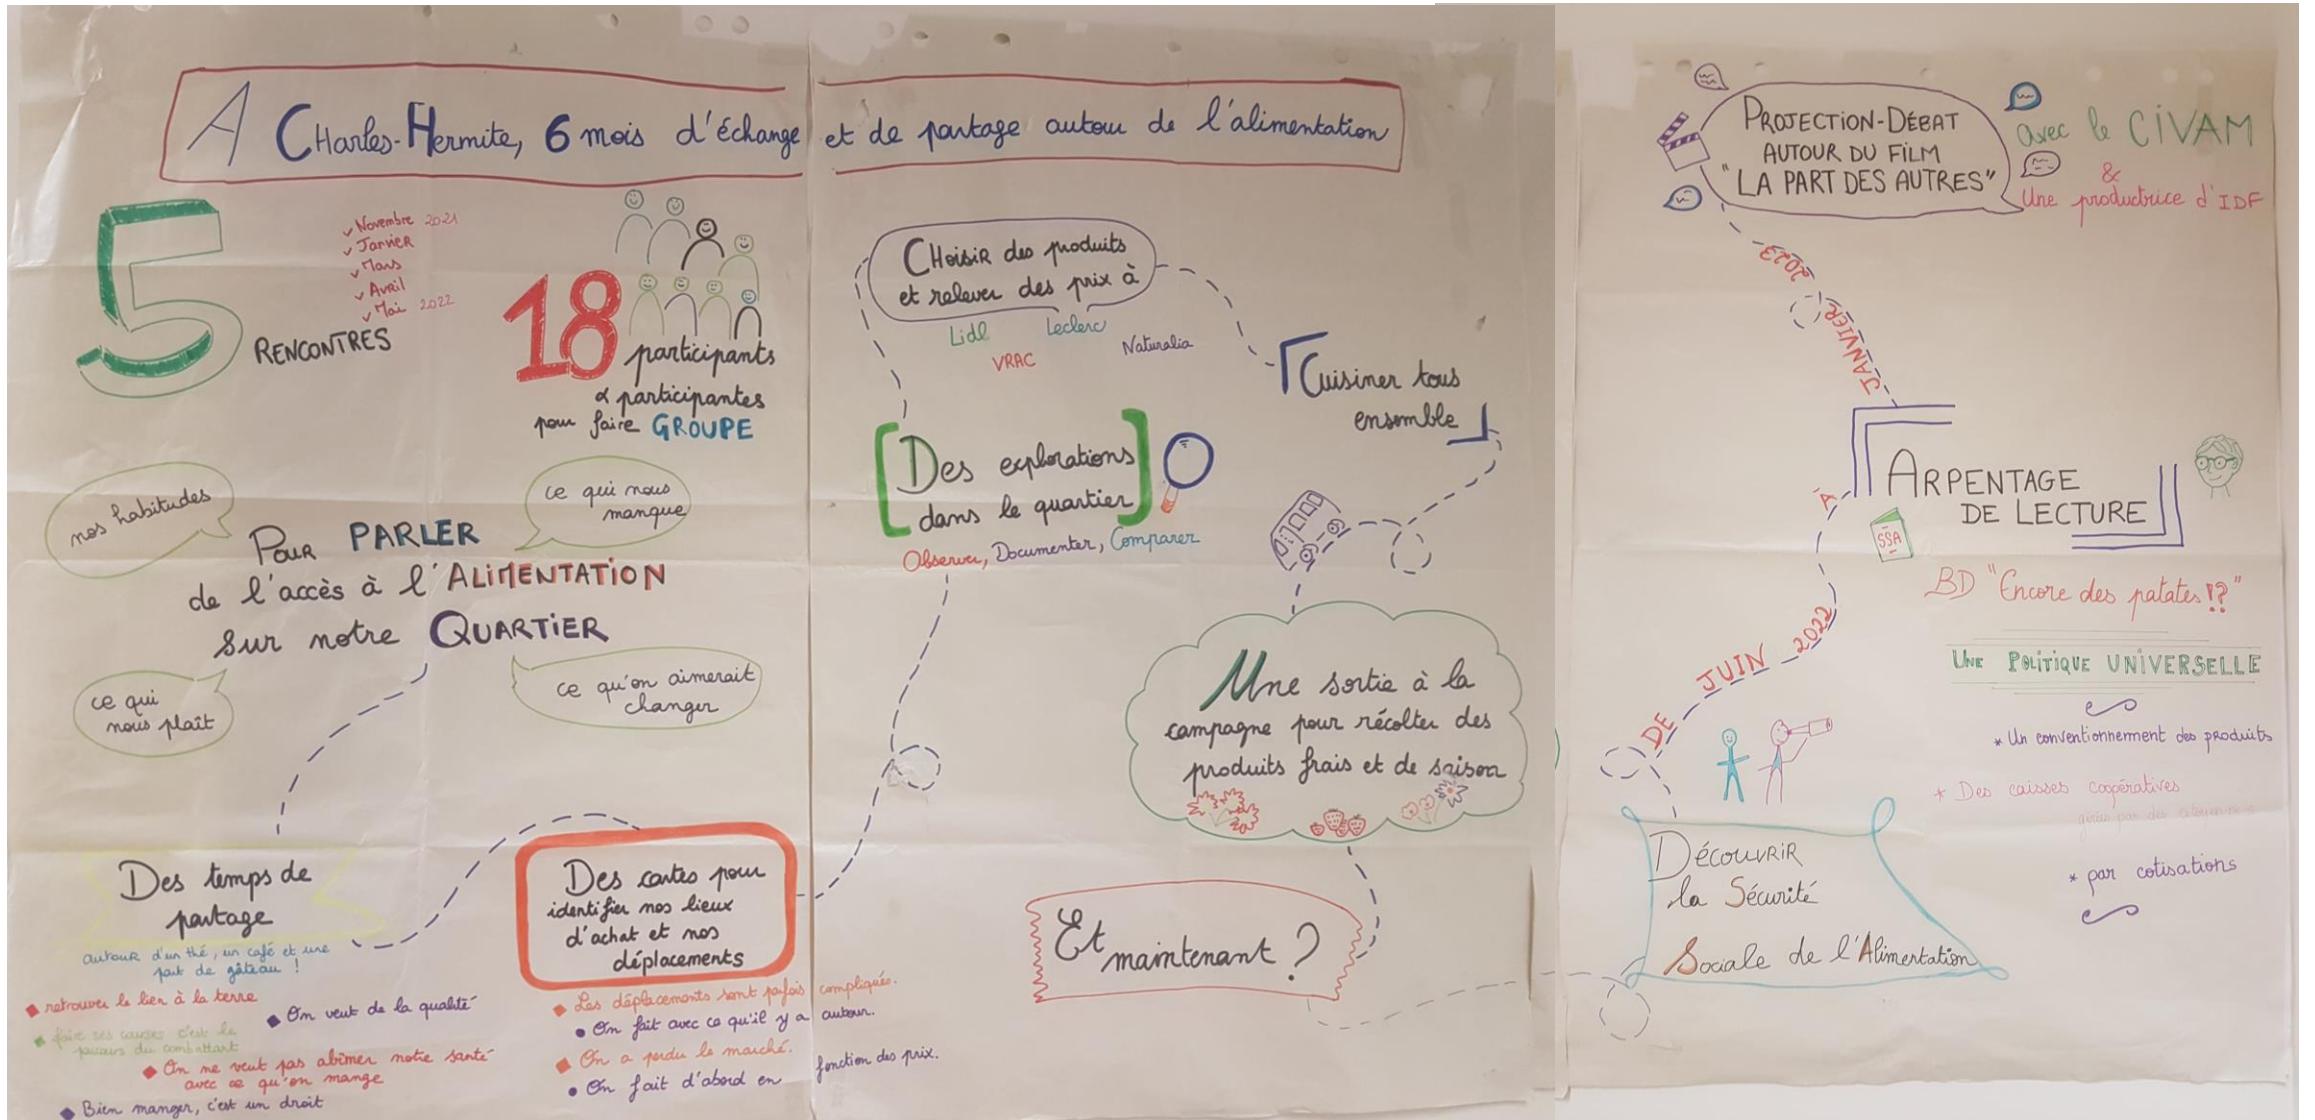 A CHarles-Hermite, 6 mois d'échange et de partage autour de l'alimentation
5
RENCONTRES
Novembre 2021
Janvier
Mars
Avril
Mai 2022
18
participants
& participantes
pour faire GROUPE
nos habitudes
ce qui nous
manque
Pour PARLER
de l'accès à l'ALIMENTATION
sur notre QUARTIER
ce qui
nous plaît
ce qu'on aimerait
changer
Des temps de
partage
autour d'un thé, un café et une
part de gâteau !
retrouver le lien à la terre
On veut de la qualité
faire ses courses c'est le
parcours du combattant
On ne veut pas abîmer notre santé
avec ce qu'on mange
Bien manger, c'est un droit
Des cartes pour
identifier nos lieux
d'achat et nos
déplacements
Les déplacements sont parfois compliqués.
On fait avec ce qu'il y a autour.
On a perdu le marché.
On fait d'abord en fonction des prix.
CHoisir des produits
et relever des prix à
Lidl
Leclerc
VRAC
Naturalia
Des explorations
dans le quartier
Observer, Documenter, Comparer
Cuisiner tous
ensemble
Une sortie à la
campagne pour récolter des
produits frais et de saison
Et
maintenant ?
PROJECTION-DÉBAT
AUTOUR DU FILM
"LA PART DES AUTRES"
avec le CIVAM
&
Une productrice d'IDF
DE JUIN 2022 À JANVIER 2023
ARPENTAGE
DE LECTURE
SSA
BD "Encore des patates !?"
UNE POLITIQUE UNIVERSELLE
* Un conventionnement des produits
* Des caisses coopératives
gérées par des
* par cotisations
DÉCOUVRIR
la Sécurité
Sociale de l'Alimentation